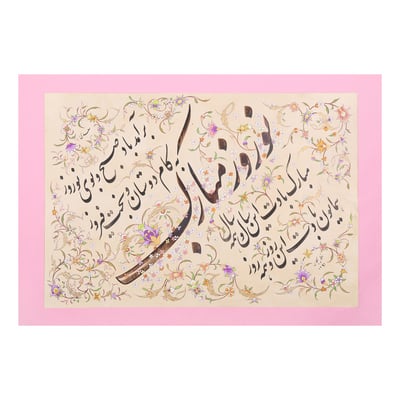 نوروز مبارک
برآمد باد صبح و بوی نوروز
بکام دوستان و بخت فیروز
مبارک بادت این سال و همه سال
همایون بادت این روز و همه روز